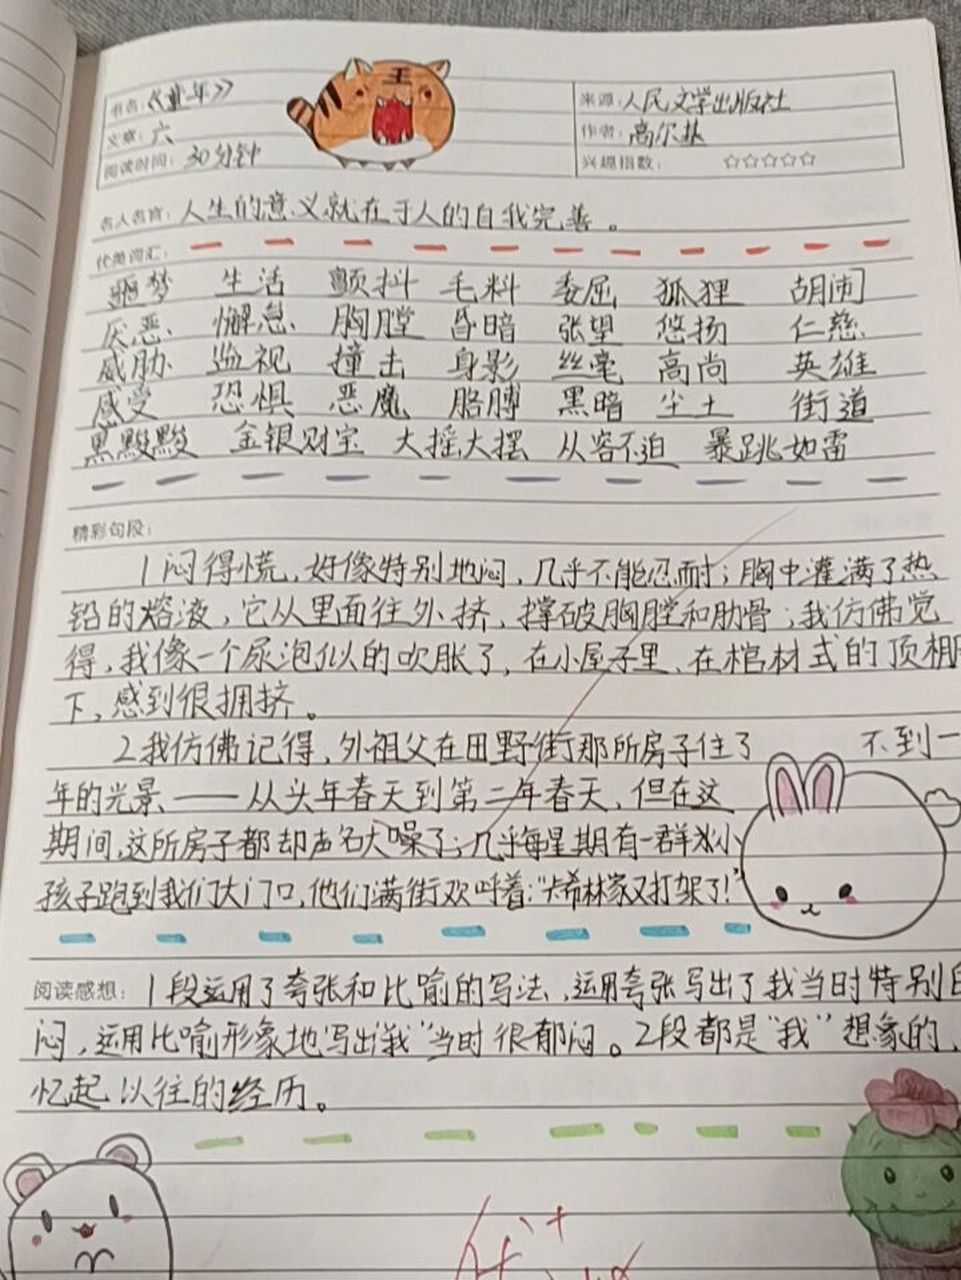 书名：《童年》
来源：人民文学出版社
文章：六
作者：高尔基
阅读时间：30分钟
兴趣指数：☆☆☆☆☆
王
名人名言：人生的意义就在于人的自我完善。
优美词汇：
噩梦 生活 颤抖 毛料 委屈 狐狸 胡闹
厌恶 懈怠 胸膛 昏暗 张望 悠扬 仁慈
威胁 监视 撞击 身影 丝毫 高尚 英雄
感受 恐惧 恶魔 胳膊 黑暗 尘土 街道
黑黢黢 金银财宝 大摇大摆 从容不迫 暴跳如雷
精彩句段：
1闷得慌，好像特别地闷，几乎不能忍耐；胸中灌满了热
铅的熔液，它从里面往外挤，撑破胸膛和肋骨；我仿佛觉
得，我像一个尿泡似的吹胀了，在小屋子里、在棺材式的顶棚
下，感到很拥挤。
2我仿佛记得，外祖父在田野街那所房子住了 不到一
年的光景——从头年春天到第二年春天，但在这
期间，这所房子都却声名大噪了；几乎每星期有一群
孩子跑到我们大门口，他们满街欢呼着："卡希林家又打架了！"
阅读感想：1段运用了夸张和比喻的写法，运用夸张写出了我当时特别
闷，运用比喻形象地写出"我"当时很郁闷。2段都是"我"想象的，
忆起以往的经历。